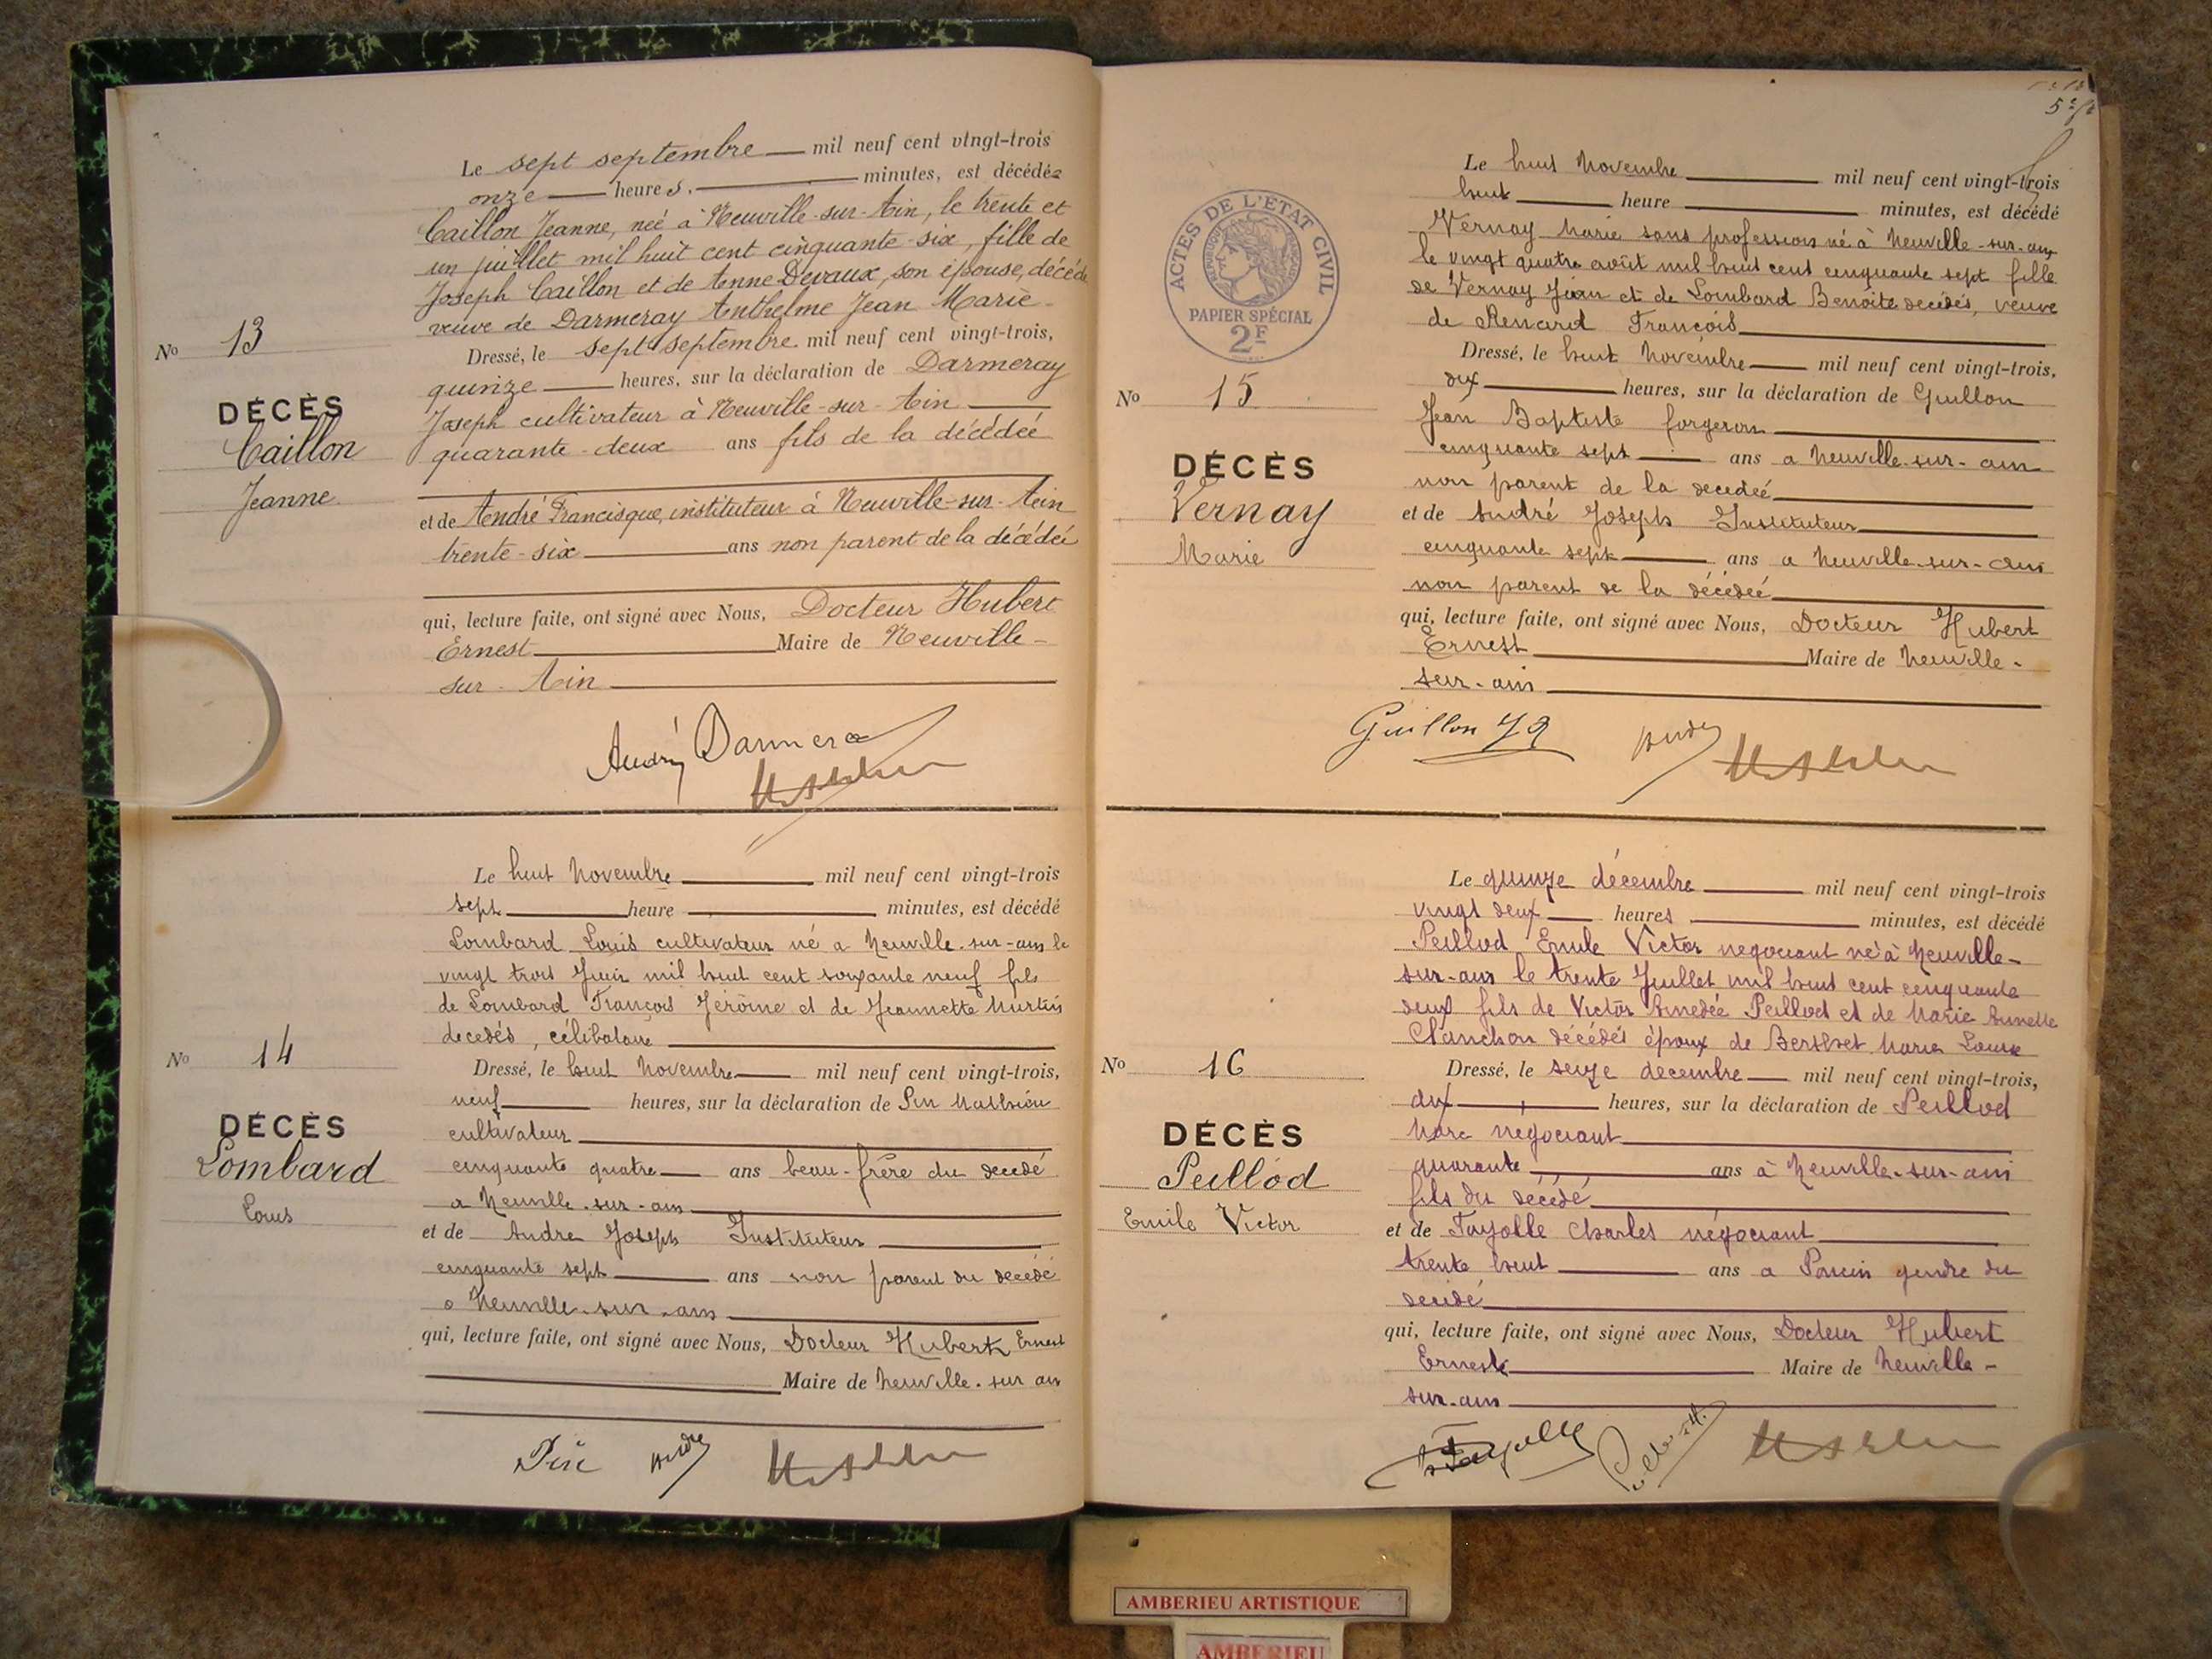 Le sept septembre mil neuf cent vingt-trois
onze heures. minutes, est décédée
Caillon Jeanne, neé à Neuville-sur-Ain, le trente et
un juillet mil huit cent cinquante-six, fille de
Joseph Caillon et de Anne Devaux, son épouse, décédé
veuve de Darmeray Anthelme Jean Marie
Dressé, le sept septembre mil neuf cent vingt-trois,
quinze heures, sur la déclaration de Darmeray
Joseph cultivateur à Neuville-sur-Ain
quarante-deux ans fils de la décédée
et de André Francisque, instituteur à Neuville-sur-Ain
trente-six ans non parent de la décédée
qui, lecture faite, ont signé avec Nous, Docteur Hubert
Ernest Maire de Neuville-
sur-Ain
No 13
DÉCÈS
Caillon
Jeanne
André Darmera
Le huit Novembre mil neuf cent vingt-trois
sept heure minutes, est décédé
Lombard Louis cultivateur né a Neuville-sur-ain le
vingt trois Juin mil huit cent soixante neuf fils
de Lombard François Jérôme et de Jeannette Murtin
decedés, célibataire
Dressé, le huit Novembre mil neuf cent vingt-trois,
neuf heures, sur la déclaration de Pin Mathieu
cultivateur
cinquante quatre ans beau-frère du decedé
a Neuville-sur-ain
et de Andre Joseph Instituteur
cinquante sept ans non parent du decedé
a Neuville-sur-ain
qui, lecture faite, ont signé avec Nous, Docteur Hubert Ernest
Maire de Neuville-sur ain
No 14
DÉCÈS
Lombard
Louis
André
5e
ACTES DE L'ÉTAT CIVIL
RÉPUBLIQUE FRANÇAISE
PAPIER SPÉCIAL
2F
Le huit Novembre mil neuf cent vingt-trois
huit heure minutes, est décédé
Vernay Marie sans profession né à Neuville-sur-ain
le vingt quatre août mil huit cent cinquante sept fille
de Vernay Jean et de Lombard Benoîte decédés, veuve
de Renard François
Dressé, le huit Novembre mil neuf cent vingt-trois,
dix heures, sur la déclaration de Guillon
Jean Baptiste forgeron
cinquante sept ans a Neuville-sur-ain
non parent de la decedeé
et de André Joseph Instituteur
cinquante sept ans a Neuville-sur-ain
non parent de la décédeé
qui, lecture faite, ont signé avec Nous, Docteur Hubert
Ernest Maire de Neuville-
sur-ain
No 15
DÉCÈS
Vernay
Marie
Guillon JB
Le quinze décembre mil neuf cent vingt-trois
vingt deux heures minutes, est décédé
Peillod Emile Victor negociant né à Neuville-
sur-ain le trente Juillet mil huit cent cinquante
deux fils de Victor Amedée Peillod et de Marie Annette
Clanchon décédés époux de Berthet Marie Louise
Dressé, le seize decembre mil neuf cent vingt-trois,
dix heures, sur la déclaration de Peillod
Marc negociant
quarante ans à Neuville-sur-ain
fils du décédé
et de Fayolle Charles négociant
trente huit ans a Poncin gendre du
decidé
qui, lecture faite, ont signé avec Nous, Docteur Hubert
Ernest Maire de Neuville-
sur-ain
No 16
DÉCÈS
Peillod
Emile Victor
Fayolle
AMBERIEU ARTISTIQUE
AMBERIEU